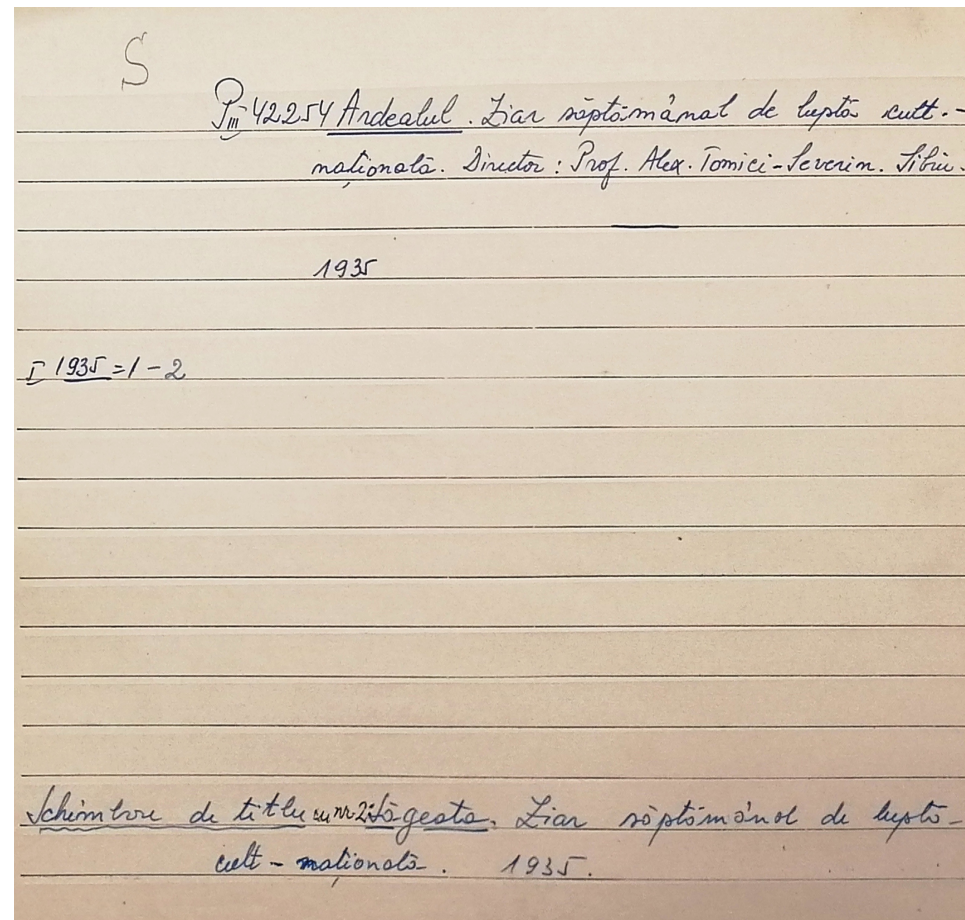 S
PIII 42254 Ardealul. Ziar săptămânal de luptă cult.-
națională. Director: Prof. Alex. Tomici-Severin. Sibiu.
1935
I 1935 = 1-2
Schimbare de titlu cu nr 2: Săgeata. Ziar săptămânal de luptă
cult-națională. 1935.